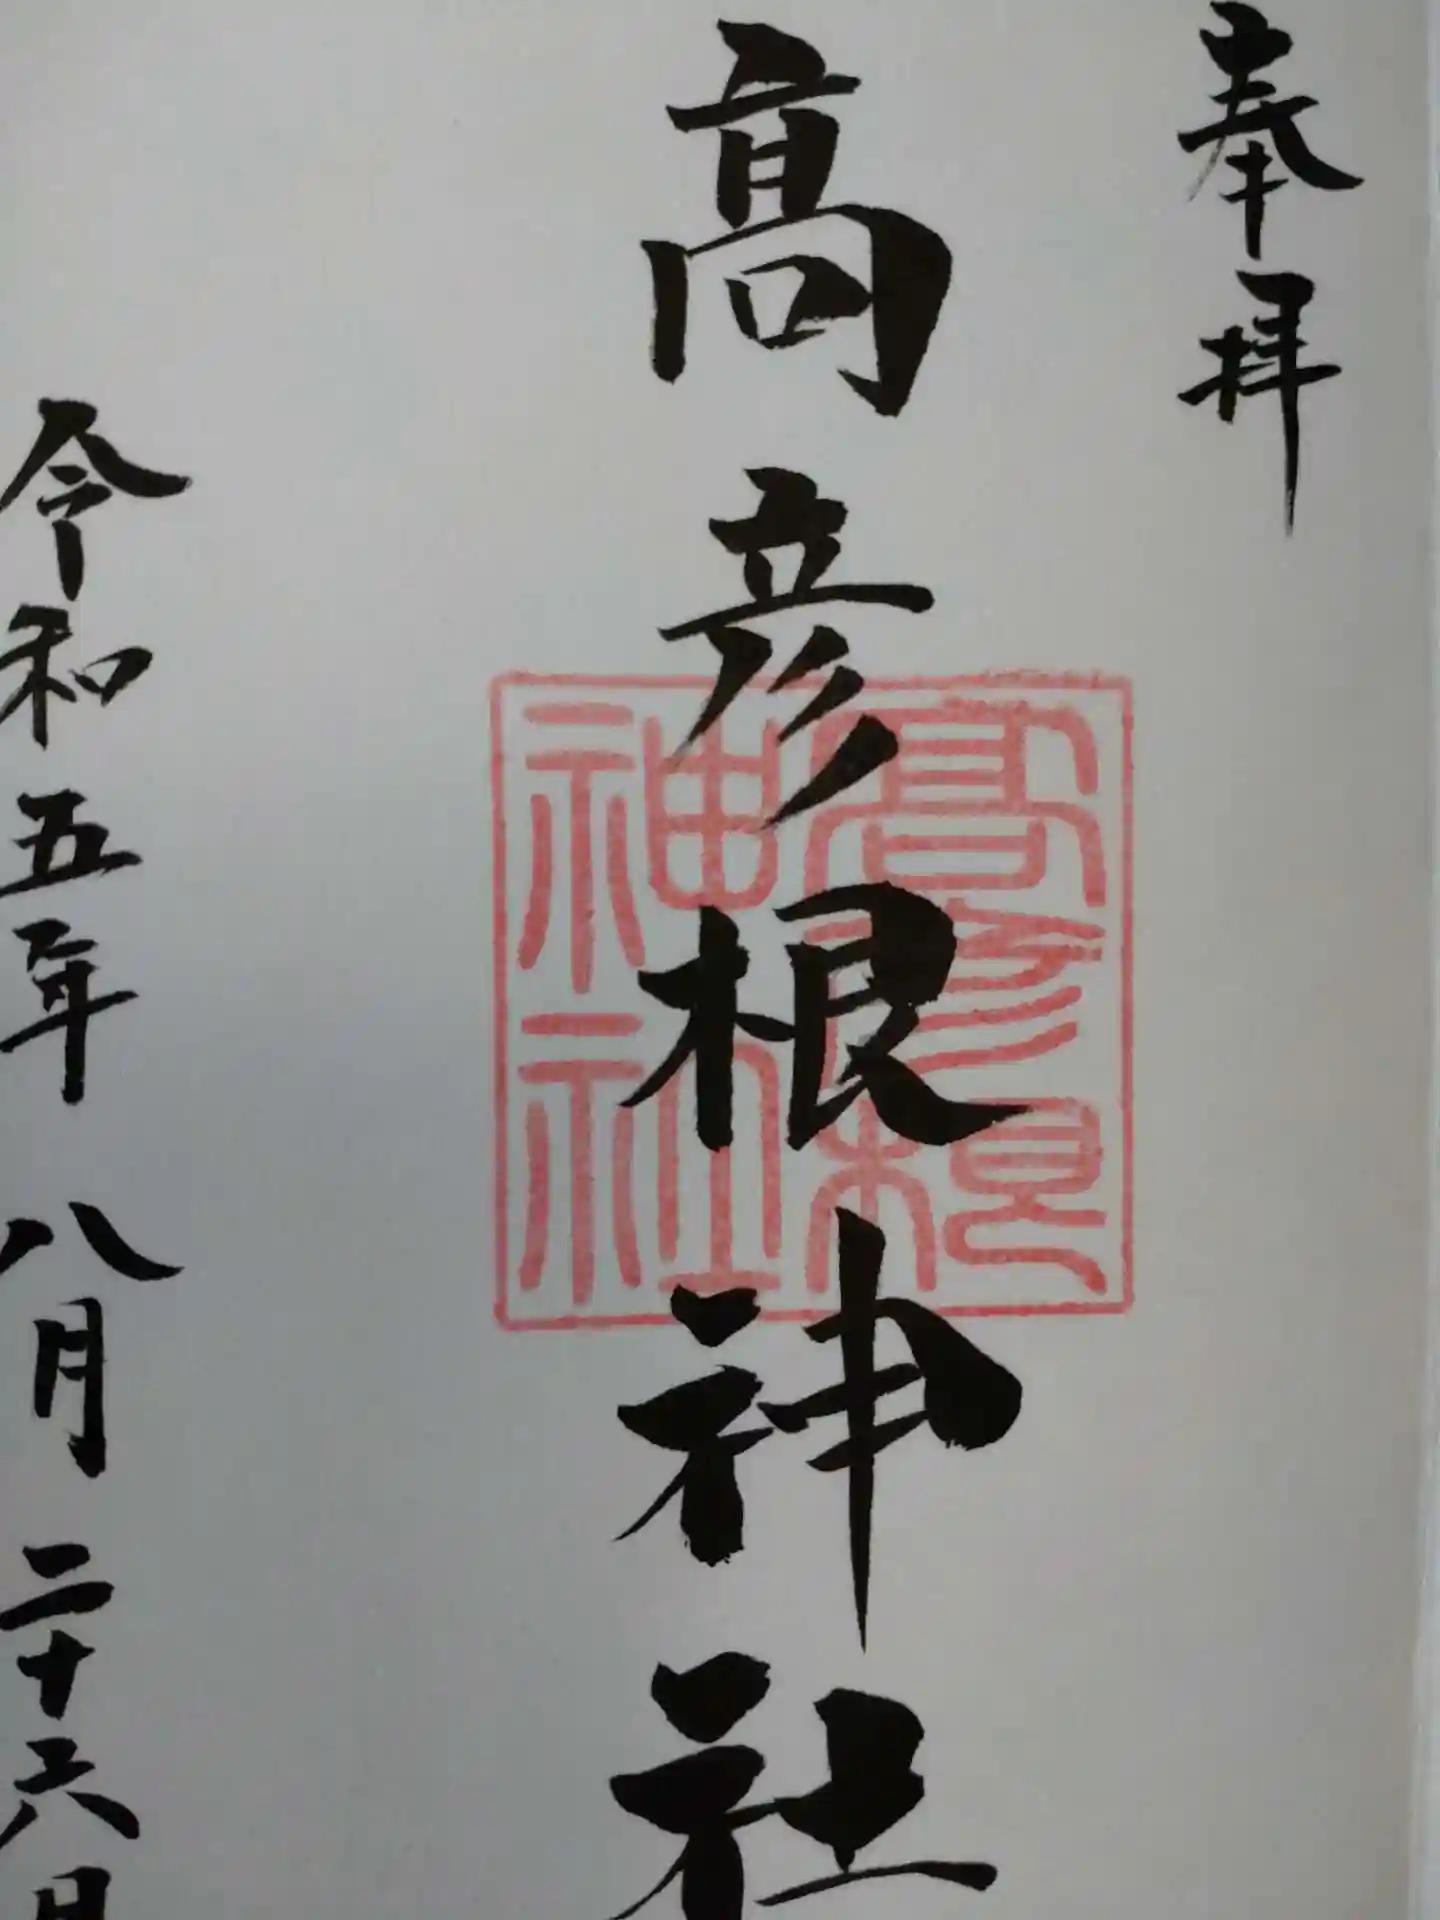 奉拝
髙彦根神社
高彦根
神社
令和五年 八月 二十六日